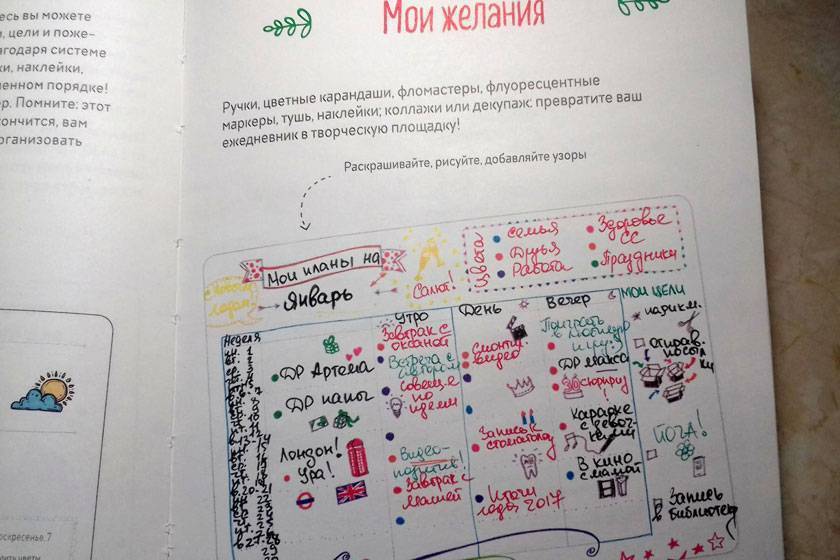 есь вы можете
, цели и поже-
агодаря системе
ки, наклейки,
ненном порядке!
ер. Помните: этот
кончится, вам
организовать
Мои желания
Ручки, цветные карандаши, фломастеры, флуоресцентные
маркеры, тушь, наклейки; коллажи или декупаж: превратите ваш
ежедневник в творческую площадку!
Раскрашивайте, рисуйте, добавляйте узоры
Мои планы на
Январь
С Новым
годом!
Салют!
Цвета:
семья
Друзья
Работа
Здоровье
СС
Праздники
Неделя
ДР Артема
ДР папы
Лондон!
Ура!
Утро
Завтрак с
Оксаной
Встреча с
совеща-
ние по
идеям
Видео-
Завтрак с
Машей
День
Смотр.
видео
Запись к
стоматологу
Итоги
года 2017
Вечер
Поиграть
ДР Макса
Сюрприз
!
Караоке
с девоч-
ками
В кино
с мамой
Мои цели
парикм.
отправ.
посыл
ки
ЙОГА!
Запись
библиотек
оскресенье. 7